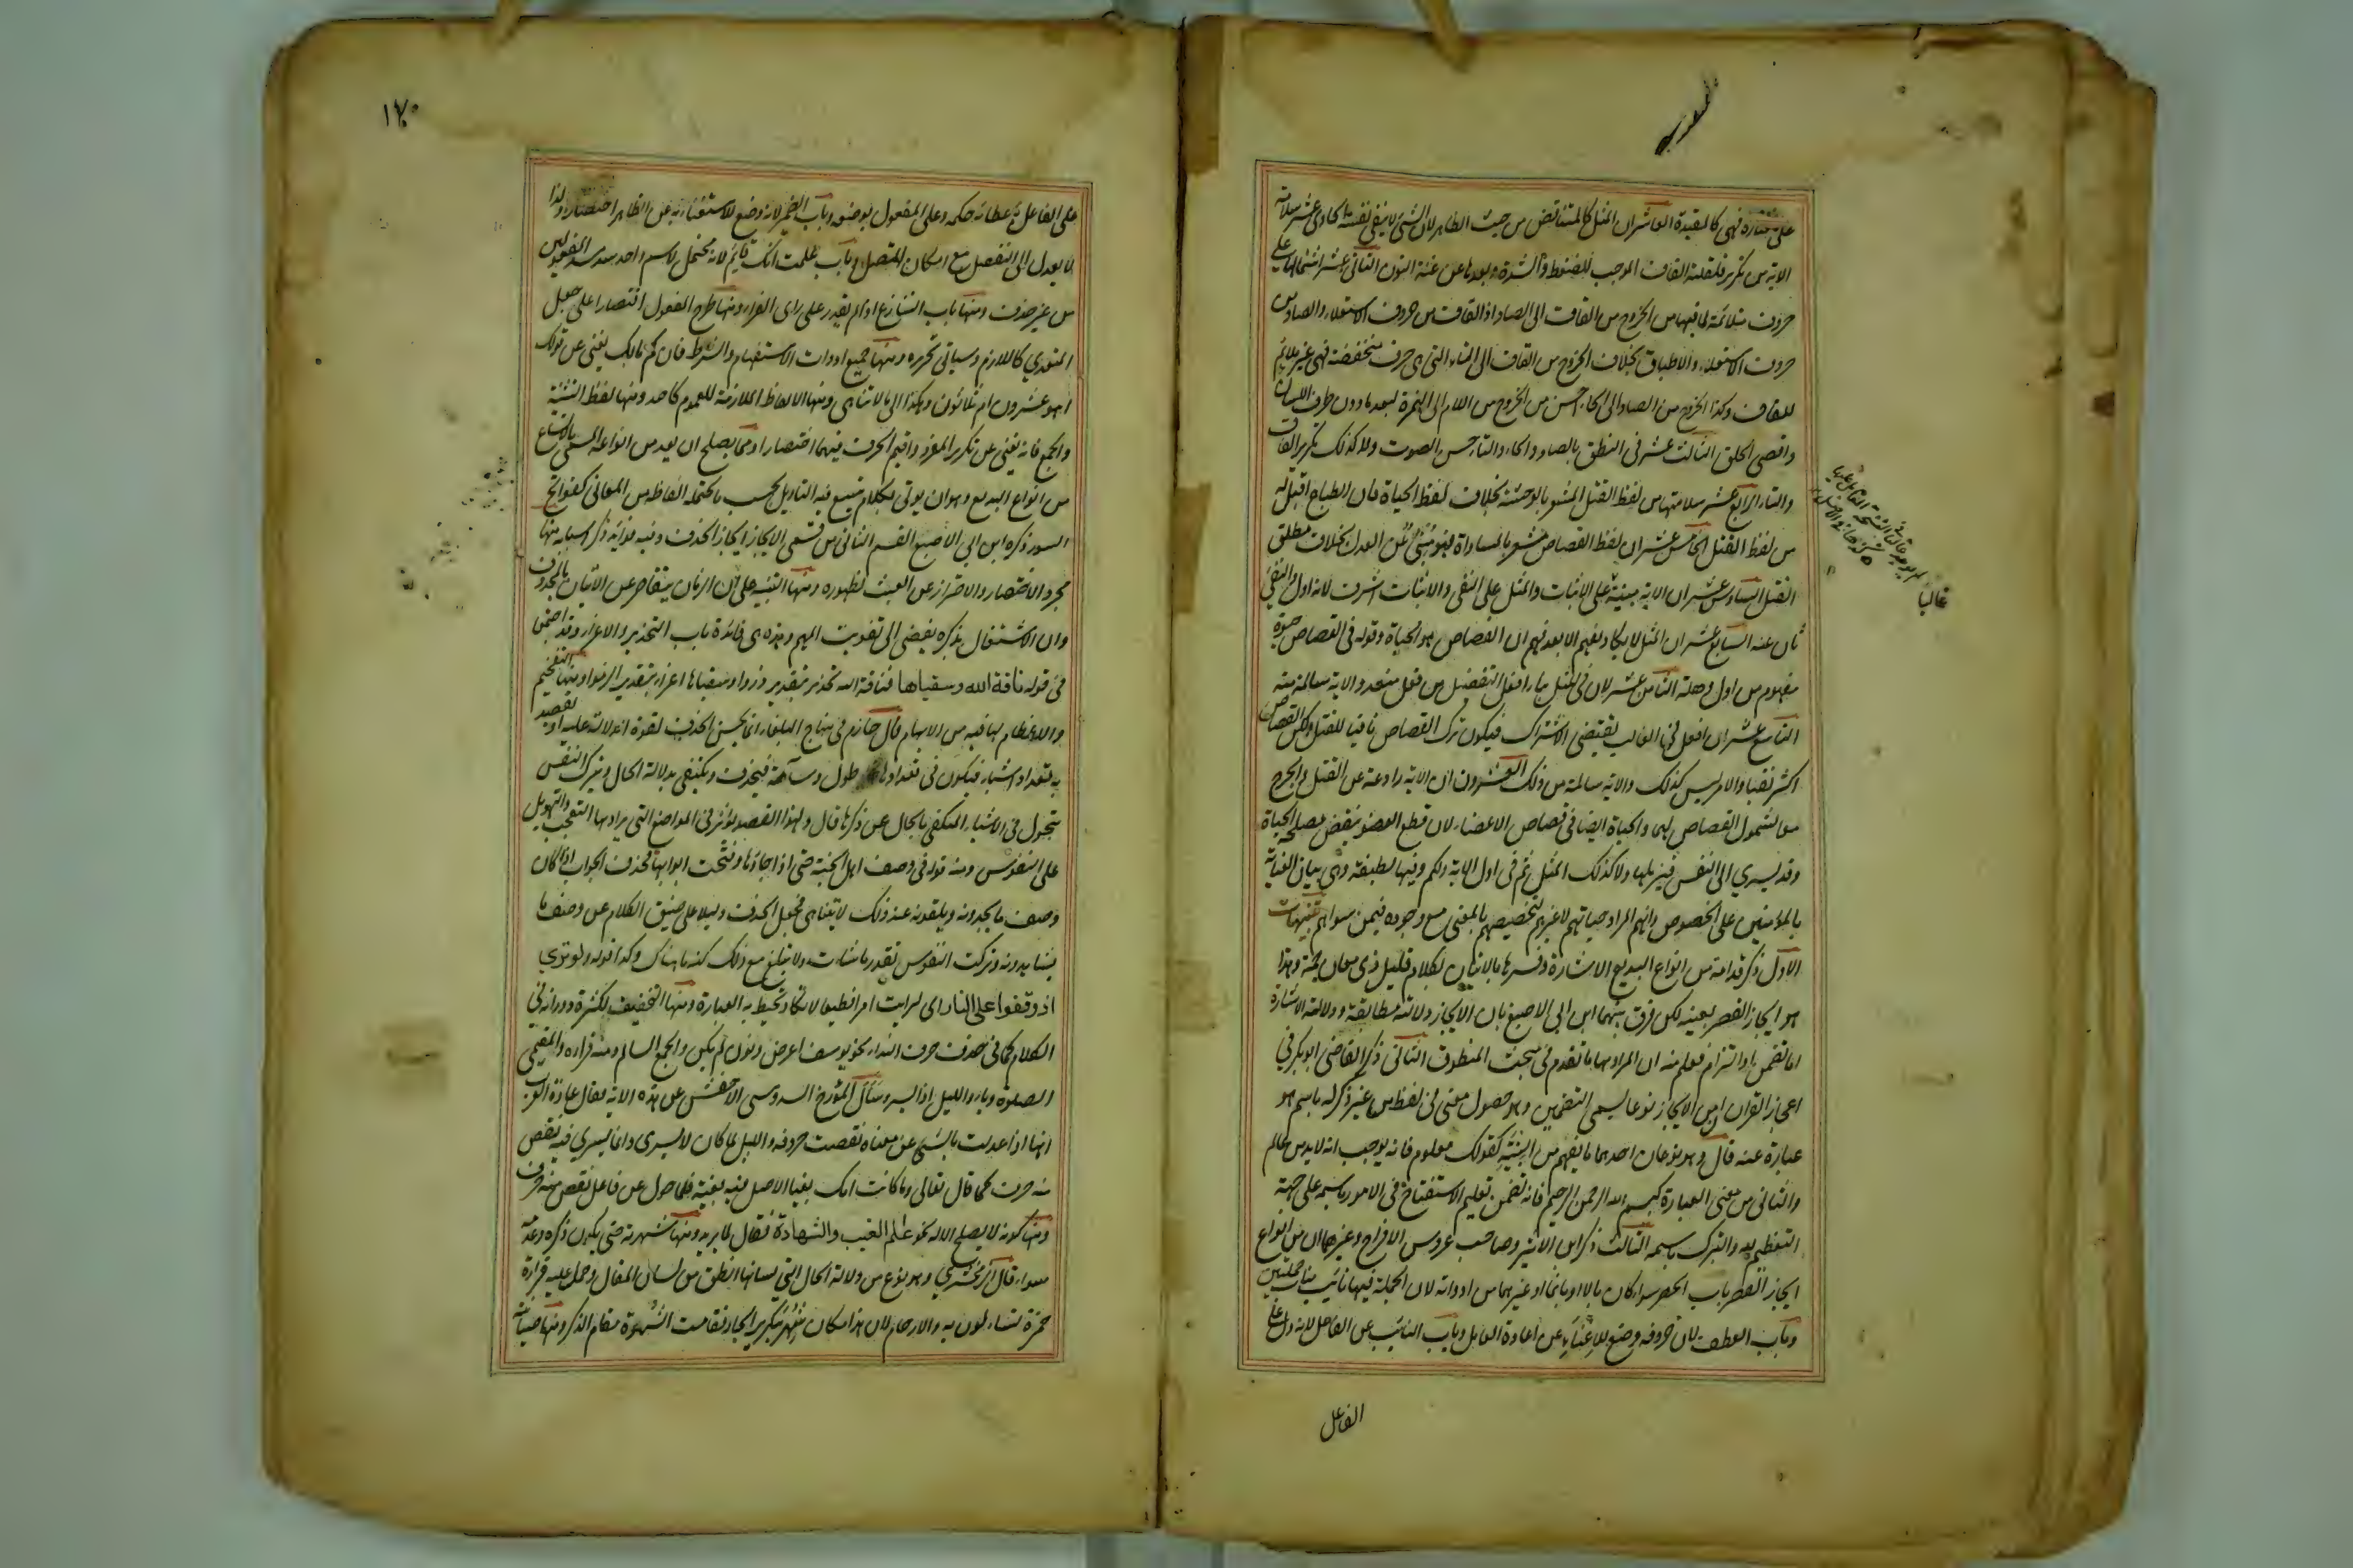 على عبارة فهي كالمقيدة العاشر ان المثل كالمتناقض من حيث الظاهر لان الشئ لا ينفي نفسه الحادى عشر سلامة
الاية من تكرير قلقلة القاف الموجب للضغط والشدة وبعدها عن غنة النون الثانى عشر اشتمالها على
حروف متلائمة لما فيها من الخروج من القاف الى الصاد اذ القاف من حروف الاستعلاء والصاد من
حروف الاستعلاء والاطباق بخلاف الخروج من القاف الى التاء التى هى حرف منخفضة فهى غير ملائم
للقاف وكذا الخروج من الصاد الى الحاء احسن من الخروج من اللام الى الهمزة لبعد ما دون طرف اللسان
واقصى الحلق الثالث عشر فى النطق بالصاد والحاء والتاء حسن الصوت ولا كذلك تكرير القاف
والتاء الرابع عشر سلامتها من لفظ القتل المشعر بالوحشة بخلاف لفظ الحياة فان الطباع اقبل له
من لفظ القتل الخامس عشر ان لفظ القصاص مشعر بالمساواة فهو منبئ عن العدل بخلاف مطلق
القتل السادس عشر ان الاية مبنية على الاثبات والمثل على النفى والاثبات اشرف لانه اول والنفى
ثان عنه السابع عشر ان المثل لا يكاد يفهم الا بعد فهم ان القصاص هو الحياة وقوله فى القصاص حيوة
مفهوم من اول وهلة الثامن عشر لان فى المثل بناء افعل التفضيل من فعل متعد والاية سالمة منه
التاسع عشر ان افعل فى الغالب يقتضى الاشتراك فيكون ترك القصاص نافيا للقتل ولكن القصاص
اكثر نفيا والامر ليس كذلك والاية سالمة من ذلك العشرون ان الاية رادعة عن القتل والجرح
معا لشمول القصاص لهما والحياة ايضا فى قصاص الاعضاء لان قطع العضو ينقص مصلحة الحياة
وقد يسري الى النفس فيزيلها ولا كذلك المثل ثم فى اول الاية ولكم وفيها لطيفة وهى بيان العناية
بالمؤمنين على الخصوص وانهم المراد حياتهم لا غيرهم لتخصيصهم بالمعنى مع وجوده فيمن سواهم تنبيهات
الاول ذكر قدامة من انواع البديع الاشارة وفسرها بالاتيان بكلام قليل ذى معان جمة وهذا
هو ايجاز القصر بعينه لكن فرق بينهما ابن ابى الاصبع بان الايجاز دلالته مطابقة ودلالة الاشارة
اما تضمن او التزام فعلم منه ان المراد بها ما تقدم فى مبحث المنطوق الثانى ذكر القاضى ابو بكر فى
اعجاز القران ان من الايجاز نوعا يسمى التضمين وهو حصول معنى فى لفظ من غير ذكر له باسم هو
عبارة عنه قال وهو نوعان احدهما ما يفهم من البنية كقولك معلوم فانه يوجب انه لا بد من عالم
والثانى من معنى العبارة كبسم الله الرحمن الرحيم فانه تضمن تعليم الاستفتاح فى الامور باسمه على جهة
التعظيم لله والتبرك باسمه الثالث ذكر ابن الاثير وصاحب عروس الافراح وغيرهما ان من انواع
ايجاز القصر باب الحصر سواء كان بالا او بانما او غيرهما من ادواته لان الجملة فيها نائب مناب جملتين
وباب العطف لان حروفه وضع للاغناء عن اعادة العامل وباب النائب عن الفاعل لانه دل على
الفاعل
١٧٠
على الفاعل باعطائه حكمه وعلى المفعول بوضعه وباب الضمير لانه وضع للاستغناء به عن الظاهر اختصارا ولذا
لا يعدل الى المنفصل مع امكان المتصل وباب علمت انك قائم لانه محتمل لاسم واحد سد مسد المفعولين
من غير حذف ومنها باب التنازع اذا لم يقدر على راى الفراء ومنها طرح المفعول اقتصارا على جعل
المتعدي كاللازم وسياتى تحريره ومنها جميع ادوات الاستفهام والشرط فان كم مالك يغنى عن قولك
اهو عشرون ام ثلاثون وهكذا الى ما لا يتناهى ومنها الالفاظ الملازمة للعموم كاحد ومنها لفظ التثنية
والجمع فانه يغنى عن تكرير المفرد واقيم الحرف فيهما اختصارا ومما يصلح ان يعد من انواعه المسمى بالاتساع
من انواع البديع وهو ان يوتى بكلام يتسع فيه التاويل بحسب ما يحتمله الفاظه من المعانى كفواتح
السور ذكره ابن ابى الاصبع القسم الثانى من قسمى الايجاز ايجاز الحذف وفيه فوائد ذكر اسبابه منها
مجرد الاختصار والاحتراز عن العبث لظهوره ومنها التنبيه على ان الزمان يتقاصر عن الاتيان بالمحذوف
وان الاشتغال بذكره يفضى الى تفويت المهم وهذه هى فائدة باب التحذير والاغراء وقد اجتمعا
فى قوله ناقة الله وسقياها فناقة الله تحذير بتقدير ذروا وسقياها اغراء بتقدير الزموا ومنها التفخيم
والاعظام لما فيه من الابهام قال حازم فى منهاج البلغاء انما يحسن الحذف لقوة الدلالة عليه او يقصد
به تعداد اشياء فيكون فى تعدادها طول وسآمة فيحذف ويكتفى بدلالة الحال ويترك النفس
تتجول فى الاشياء المكتفى بالحال عن ذكرها قال ولهذا القصد يؤثر فى المواضع التى يراد بها التعجب والتهويل
على النفوس ومنه قوله فى وصف اهل الجنة حتى اذا جاؤها وفتحت ابوابها فحذف الجواب اذ كان
وصف ما يجدونه ويلقونه عند ذلك لا يتناهى فجعل الحذف دليلا على ضيق الكلام عن وصف ما
يشاهدونه وتركت النفوس تقدر ما شاءت ولا تبلغ مع ذلك كنه ما هناك وكذا قوله ولو ترى
اذ وقفوا على النار اى لرايت امرا فظيعا لا تكاد تحيط به العبارة ومنها التخفيف لكثرة دورانه فى
الكلام كما فى حذف حرف النداء نحو يوسف اعرض ونون لم يكن والجمع السالم ومنه قراءة والمقيمى
الصلوة وياء والليل اذا يسر وسأل المؤرخ السدوسى الاخفش عن هذه الاية فقال عادة العرب
انها اذا عدلت بالشئ عن معناه نقصت حروفه والليل لما كان لا يسرى وانما يسري فيه نقص
منه حرف كما قال تعالى وما كانت امك بغيا الاصل فيه بغية فلما حول عن فاعل نقص منه حرف
ومنها كونه لا يصلح الا له نحو علم الغيب والشهادة فعال لما يريد ومنها شهرته حتى يكون ذكره وعدمه
سواء قال الزمخشري وهو نوع من دلالة الحال التى لسانها انطق من لسان المقال وحمل عليه قراءة
حمزة تساءلون به والارحام لان هذا مكان شهر بتكرير الجار فقامت الشهرة مقام الذكر ومنها صيانته